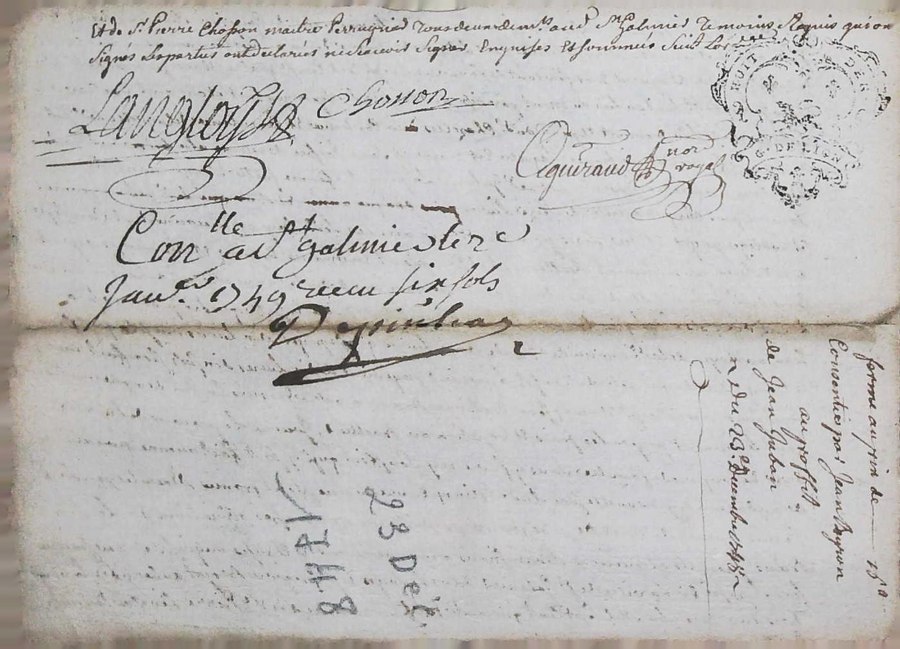 Et de Sr. Pierre Chosson maitre Perruquier tous demeurants aud. St Galmier temoins Requis qui ont
Signés les parties ont declarées ne Scavoir Signer Enquises Et Sommeés Suivt Lor
Langlois Chosson
Gquéraud nore royal
DROIT DE
G. DE LION
Conlle a St galmier le 2e
Janr. 1749 receu six sols
Depinha
ferme au prix de 15#
Consentie par Jean Peyron
au profit
de Jean Juban
du 23e. Decembre 1748
23 Dec
1748